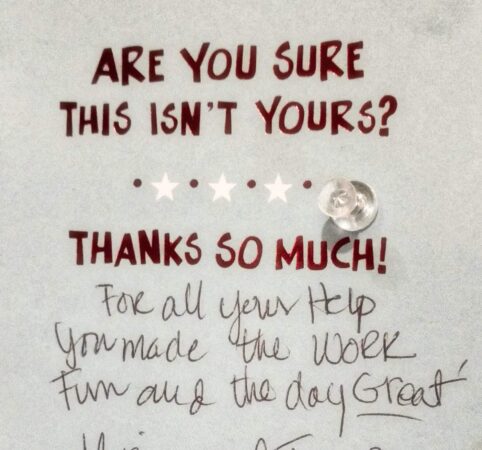 ARE YOU SURE
THIS ISN'T YOURS?
THANKS SO MUCH!
For all your Help
You made the WORK
Fun and the day Great